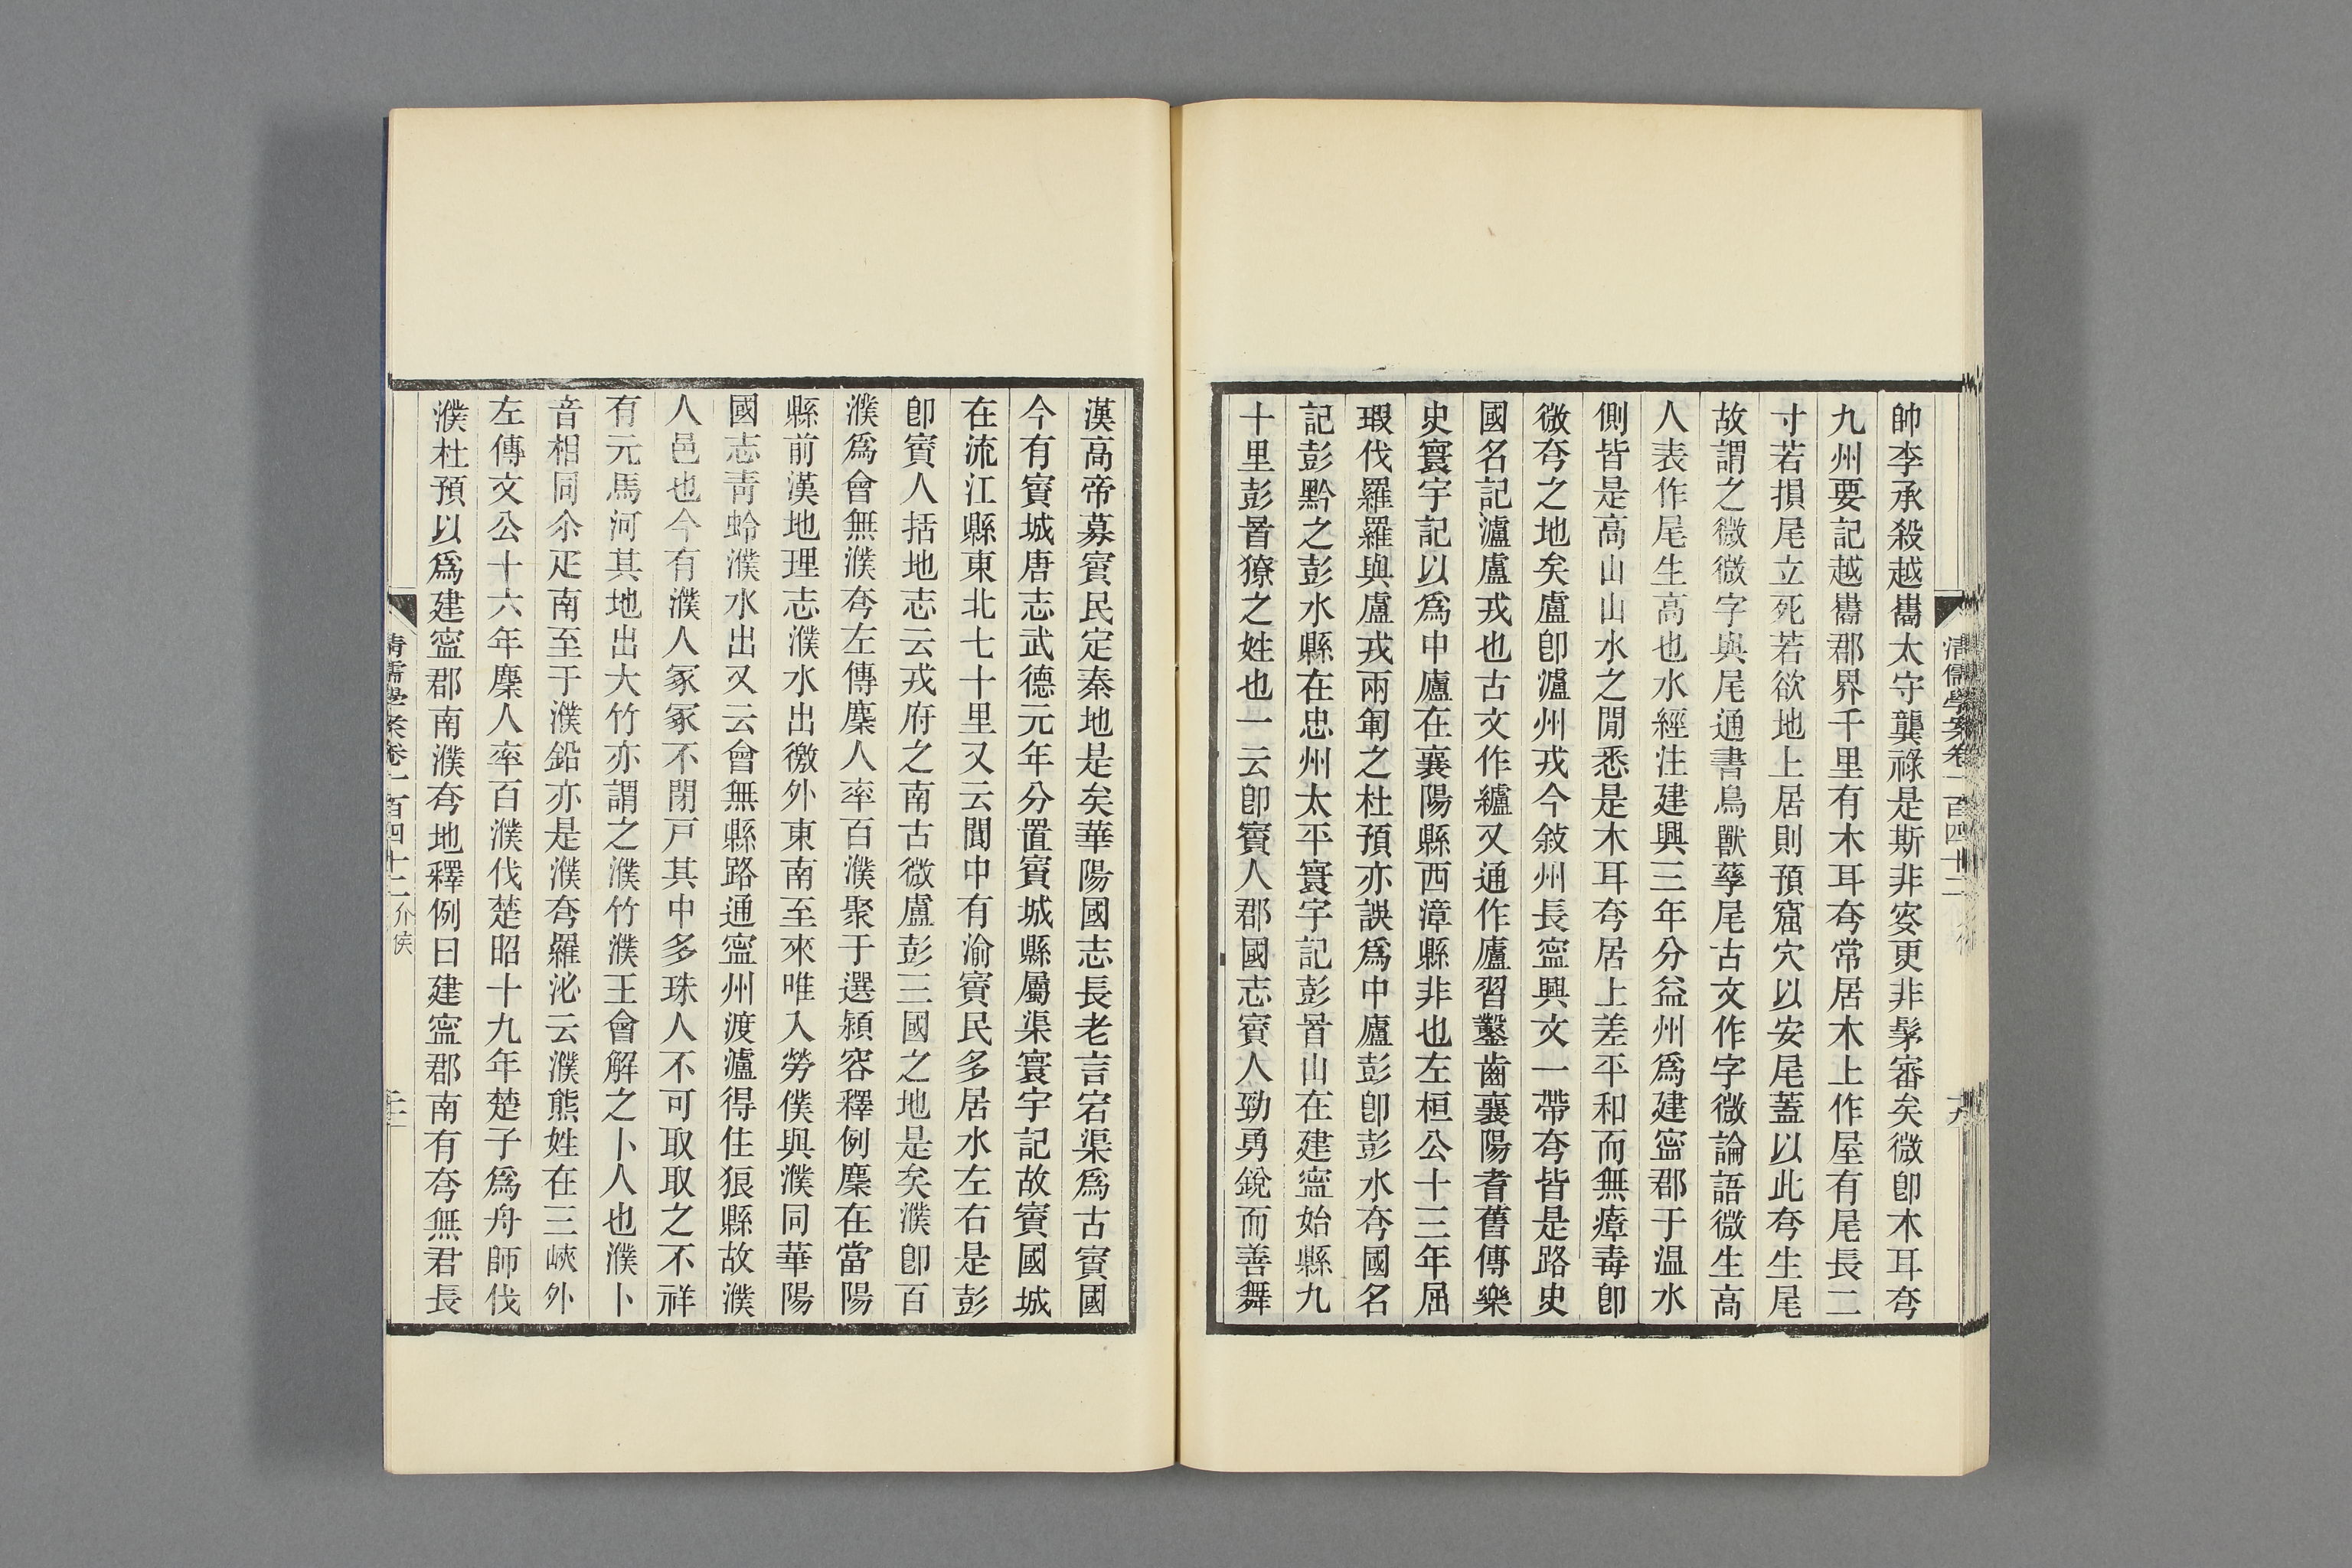 帥李承殺越嶲太守龔祿是斯非叜更非髳審矣微卽木耳夸
九州要記越嶲郡界千里有木耳夸常居木上作屋有尾長二
寸若損尾立死若欲地上居則預窟穴以安尾蓋以此夸生尾
故謂之微微字與尾通書鳥獸孳尾古文作字微論語微生高
人表作尾生高也水經注建興三年分益州爲建寧郡于温水
側皆是高山山水之閒悉是木耳夸居上差平和而無瘴毒卽
微夸之地矣盧卽瀘州戎今敍州長寧興文一帶夸皆是路史
國名記瀘盧戎也古文作纑又通作廬習鑿齒襄陽耆舊傳樂
史寰宇記以爲中廬在襄陽縣西漳縣非也左桓公十三年屈
瑕伐羅羅與盧戎兩軍之杜預亦誤爲中廬彭卽彭水夸國名
記彭黔之彭水縣在忠州太平寰宇記彭㫺山在建寧始縣九
十里彭㫺獠之姓也一云卽賨人郡國志賨人勁勇銳而善舞
清儒學案卷一百四十二
十九
漢高帝募賨民定秦地是矣華陽國志長老言宕渠爲古賨國
今有賨城唐志武德元年分置賨城縣屬渠寰宇記故賨國城
在流江縣東北七十里又云閬中有渝賨民多居水左右是彭
卽賨人括地志云戎府之南古微盧彭三國之地是矣濮卽百
濮爲會無濮夸左傳麇人率百濮聚于選潁容釋例麇在當陽
縣前漢地理志濮水出徼外東南至來唯入勞僕與濮同華陽
國志靑蛉濮水出又云會無縣路通寧州渡瀘得住狼縣故濮
人邑也今有濮人冢冢不閉戸其中多珠人不可取取之不祥
有元馬河其地出大竹亦謂之濮竹濮王會解之卜人也濮卜
音相同尒疋南至于濮鉛亦是濮夸羅泌云濮熊姓在三峽外
左傳文公十六年麇人率百濮伐楚昭十九年楚子爲舟師伐
濮杜預以爲建寧郡南濮夸地釋例曰建寧郡南有夸無君長
清儒學案卷一百四十二 介侯
二十